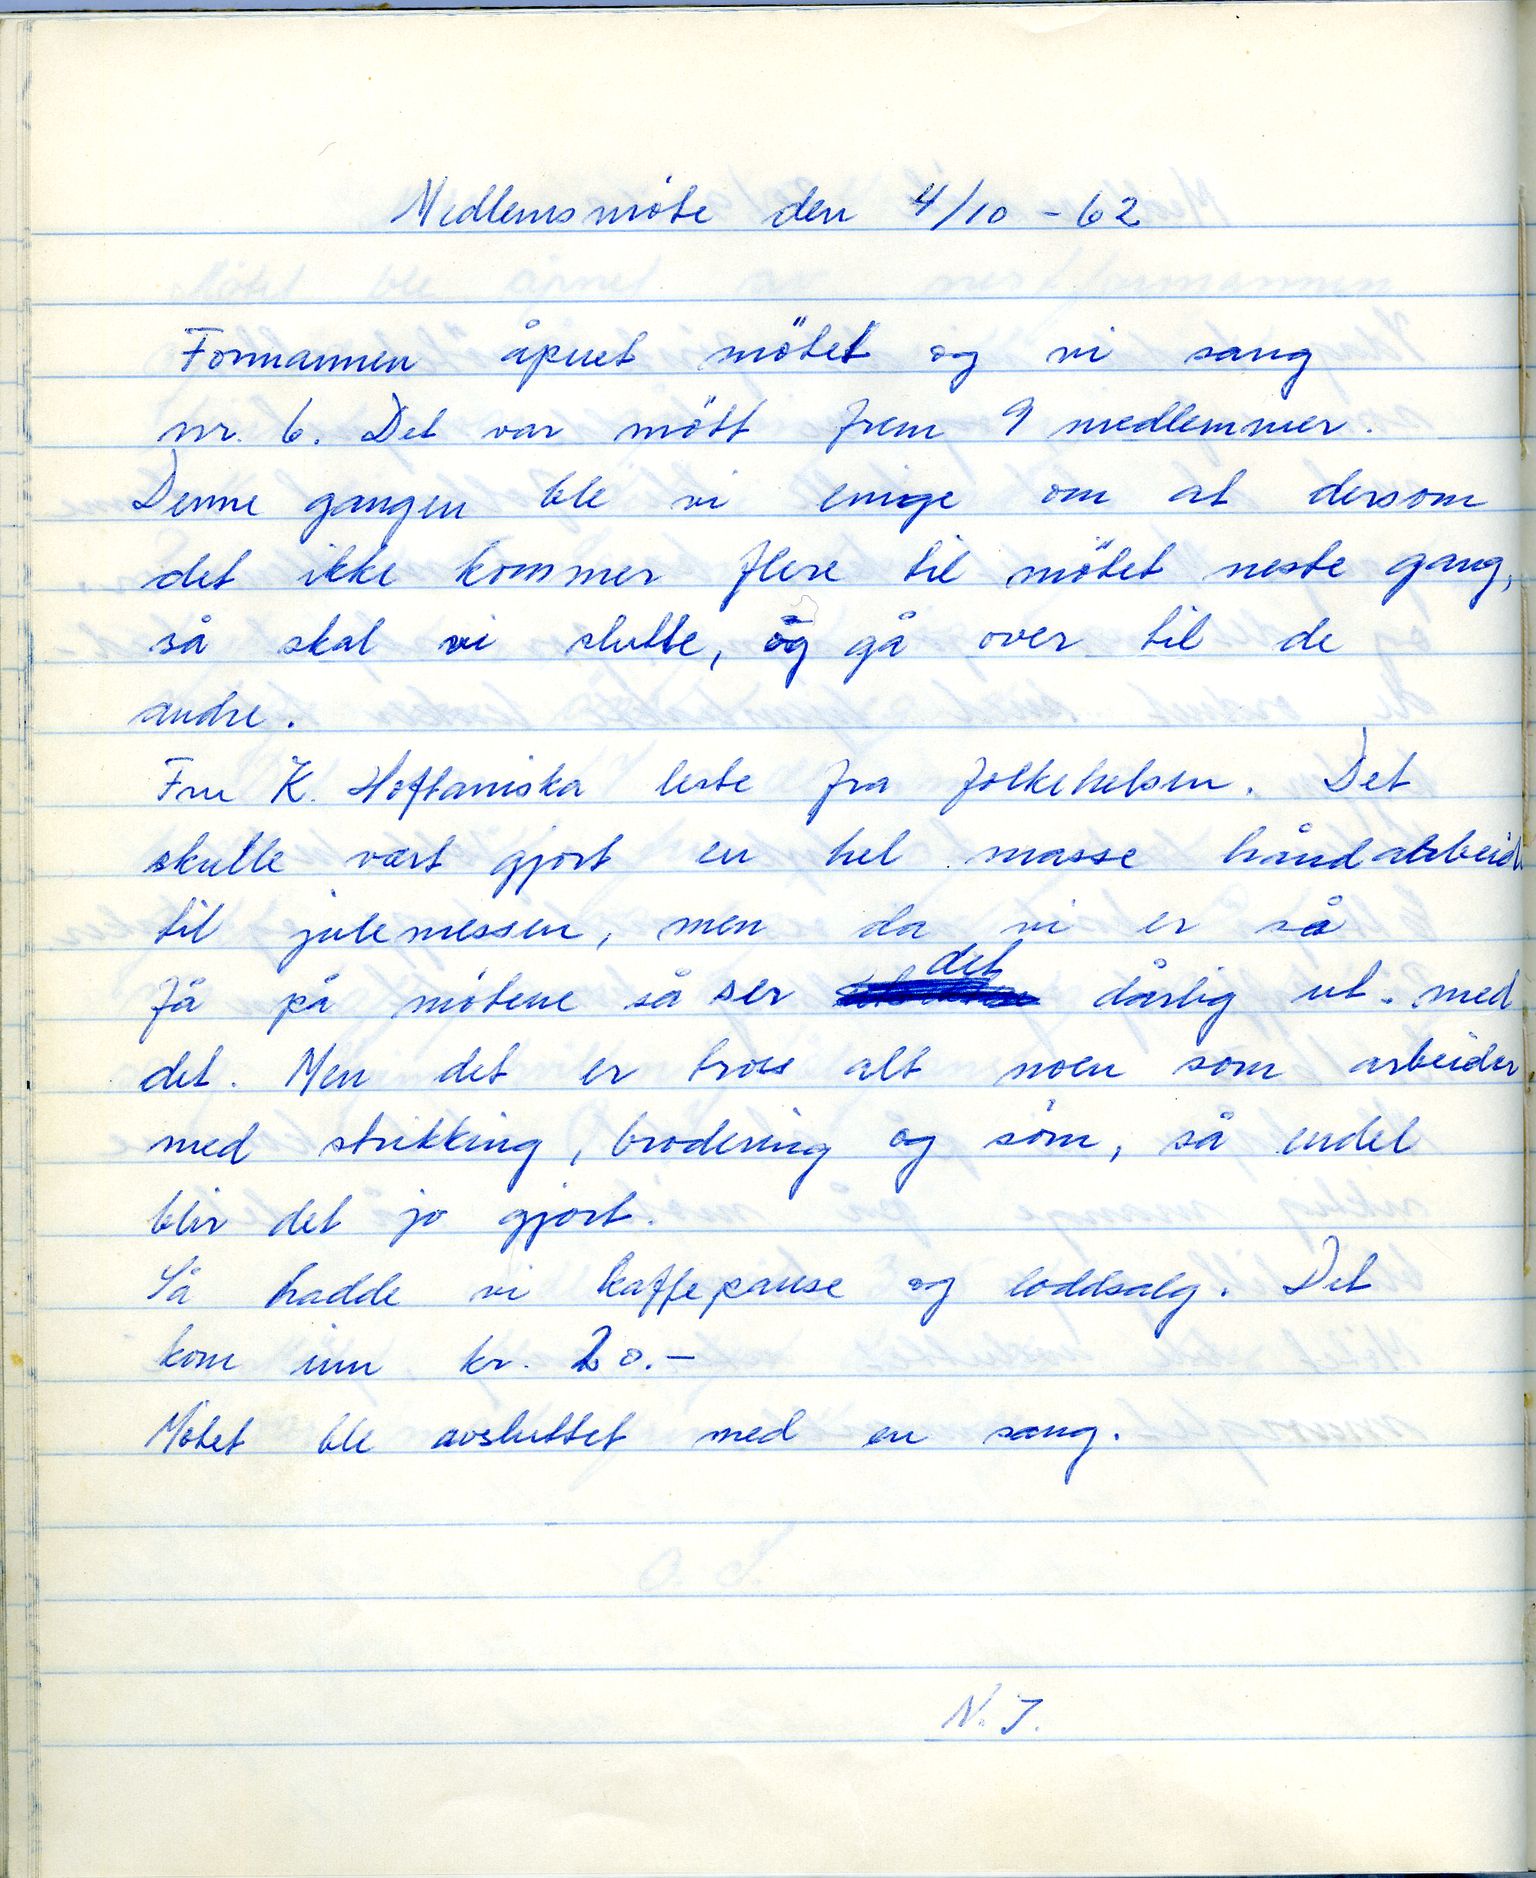 Medlemsmöte den 4/10 - 62
Formannen åpnet mötet og vi sang
nr. 6. Det var mött frem 9 medlemmer.
Denne gangen ble vi enige om at dersom
det ikke kommer flere til mötet neste gang,
så skal vi slutte, og gå over til de
andre.
Fru K. Hoftaniska leste fra folkehelsen. Det
skulle vært gjort en hel masse håndarbeid
til julemessen, men da vi er så
få på mötene så ser det dårlig ut med
det. Men det er tross alt noen som arbeider
med strikking, brodering og söm, så endel
blir det jo gjort.
Så hadde vi kaffepause og loddsalg. Det
kom inn kr. 20.-
Mötet ble avsluttet med en sang.
N. J.